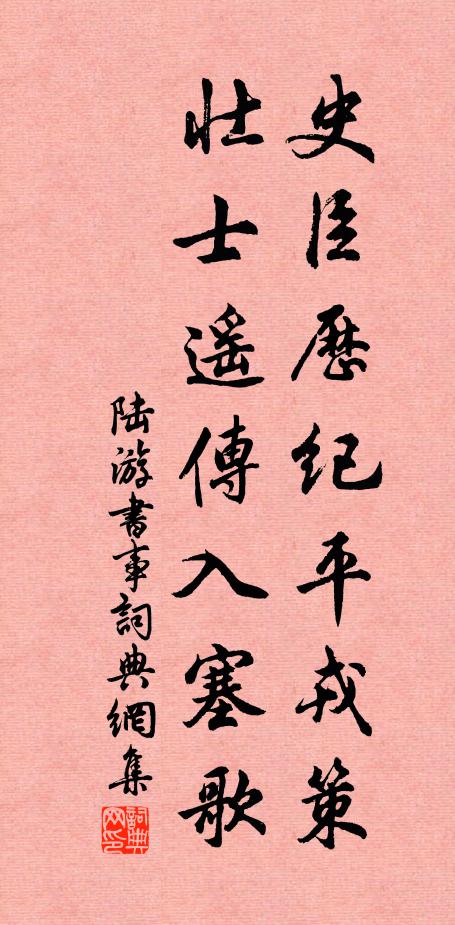 史臣歷紀平戎策
壯士遥傳入塞歌
陆游書事詞典網集
詞典网印